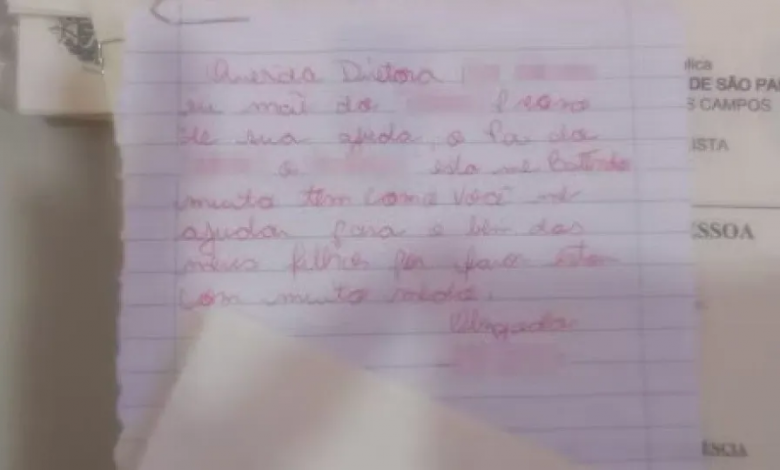 Querida Diretora
eu mãe do preciso
de sua ajuda, o Pai do
o está me Batendo
muito tem como você me
ajudar para o bem dos
meus filhos por favor estou
com muito medo.
Obrigada
DE SÃO PA
S CAMPOS
ISTA
ESSOA
ÊNCIA